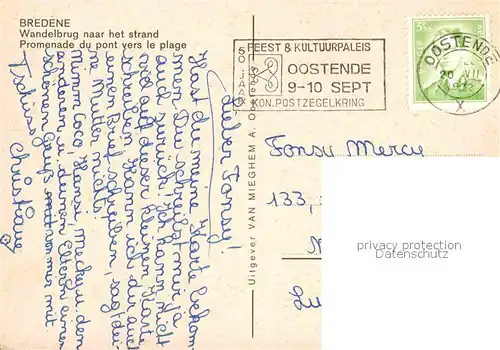 BREDENE
Wandelbrug naar het strand
Promenade du pont vers le plage
50 JAAR
FEEST & KULTUURPALEIS
OOSTENDE
9-10 SEPT
KON. POSTZEGELKRING
OOSTENDE
X
Lieber Fonsy!
Hast du meine Karte bekom-
men. Du schreibst mir ja
auch zurück. Ich kann nicht
viel auf dieser kleinen Karte
schreiben. Kann ich dir auch
einen Brief schreiben, sag dei-
ner Mutter nichts.
Nimm Coco Hansi Mecki u. den
anderen u. deinen Eltern einen
schönen Gruß mit von mir mit.
Tschüss
Christiane
Uitgever VAN MIEGHEM A.
Fonsy Mercy
133,
privacy protection
Datenschutz